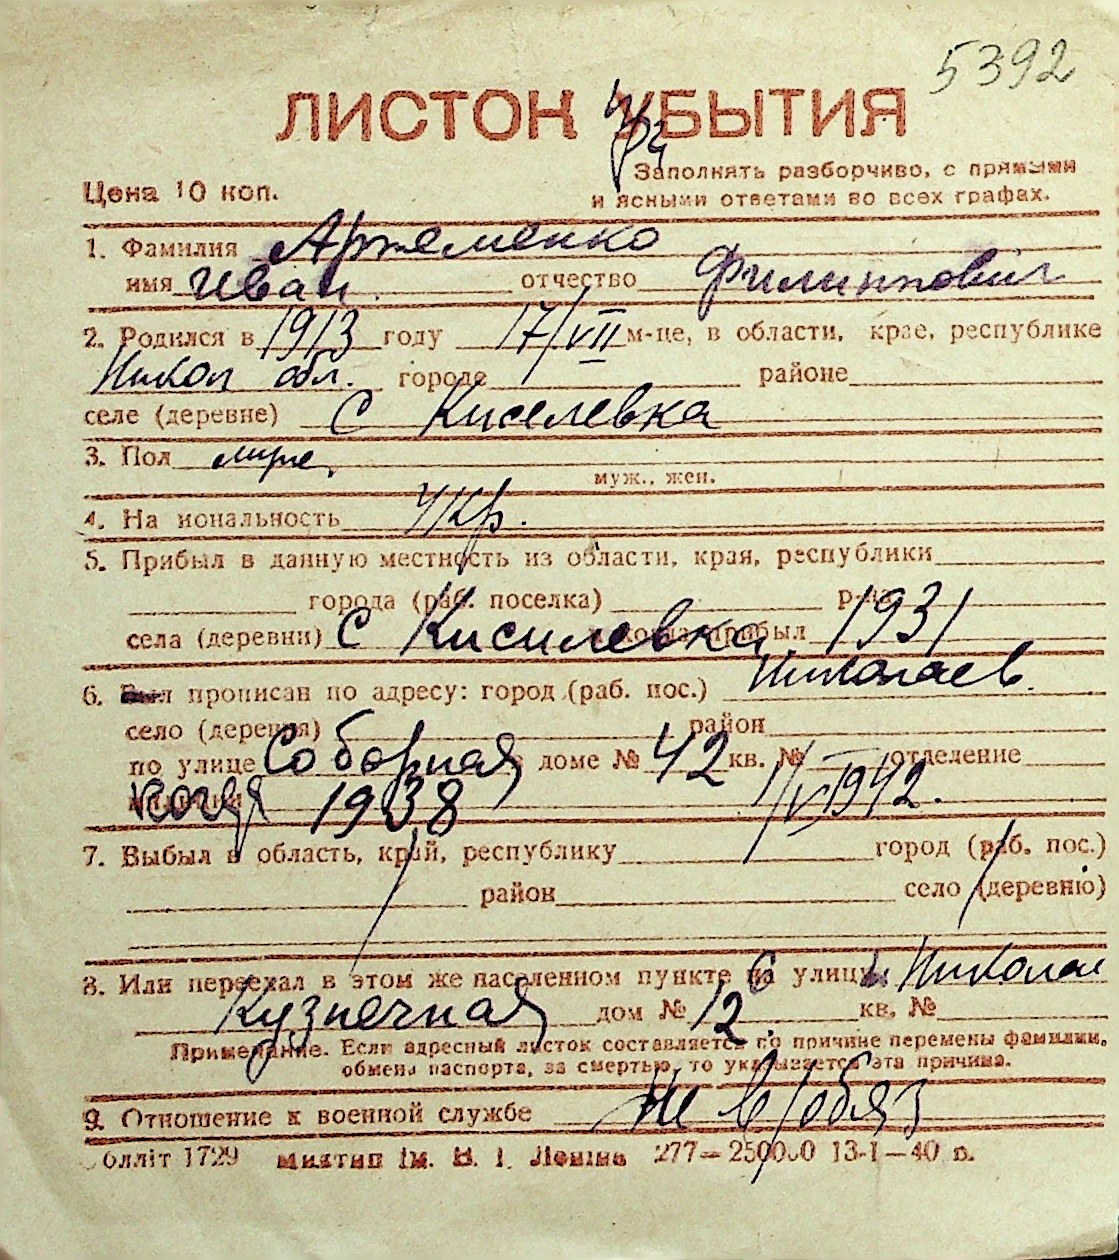 5392
ЛИСТОК УБЫТИЯ
Цена 10 коп.
Заполнять разборчиво, с прямыми
и ясными ответами во всех графах.
1. Фамилия Артеменко
имя Иван отчество Филиппович
2. Родился в 1913 году 17/VII м-це, в области, крае, республике
Никол обл. городе районе
селе (деревне) С Киселевка
3. Пол муж.
муж., жен.
4. На иональность Укр.
5. Прибыл в данную местность из области, края, республики
города (раб. поселка) р-на
села (деревни) С Кисилевка когда прибыл 1931
6. Был прописан по адресу: город (раб. пос.) Николаев
село (деревня) район
по улице Соборная доме № 42 кв. № отделение
когда 1938 1/V 1942.
7. Выбыл в область, край, республику город (раб. пос.)
район село (деревню)
8. Или переехал в этом же населенном пункте на улицу Николаи
Кузнечная дом № 12 кв. №
Примечание. Если адресный листок составляется по причине перемены фамилии,
обмена паспорта, за смертью, то указывается эта причина.
9. Отношение к военной службе Не в/обяз
блліт 1729 ім. В. І. Леніна 277—250000 13-I—40 р.